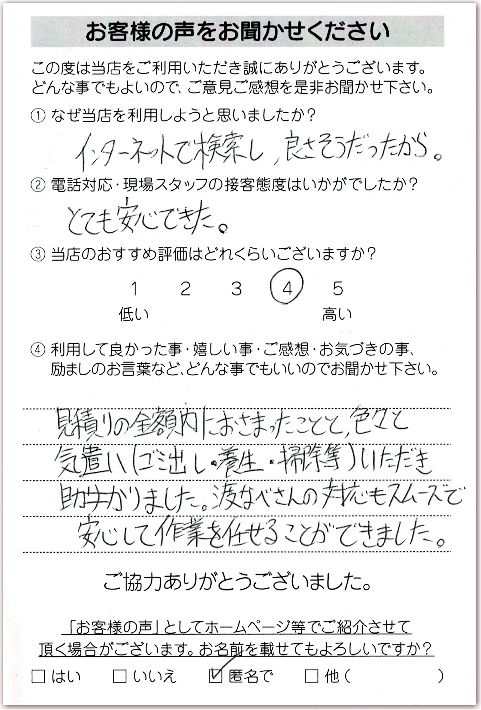 お客様の声をお聞かせください
この度は当店をご利用いただき誠にありがとうございます。
どんな事でもよいので、ご意見ご感想を是非お聞かせ下さい。
① なぜ当店を利用しようと思いましたか?
インターネットで検索し、良さそうだったから。
② 電話対応・現場スタッフの接客態度はいかがでしたか?
とても安心できた。
③ 当店のおすすめ評価はどれくらいございますか?
1 2 3 4 5
低い 高い
④ 利用して良かった事・嬉しい事・ご感想・お気づきの事、
励ましのお言葉など、どんな事でもいいのでお聞かせ下さい。
見積りの金額内におさまったことと、色々と
気遣い(ゴミ出し・養生・掃除等)いただき
助かりました。渡なべさんの対応もスムーズで
安心して作業を任せることができました。
ご協力ありがとうございました。
「お客様の声」としてホームページ等でご紹介させて
頂く場合がございます。お名前を載せてもよろしいですか?
□ はい □ いいえ ☑ 匿名で □ 他 ( )